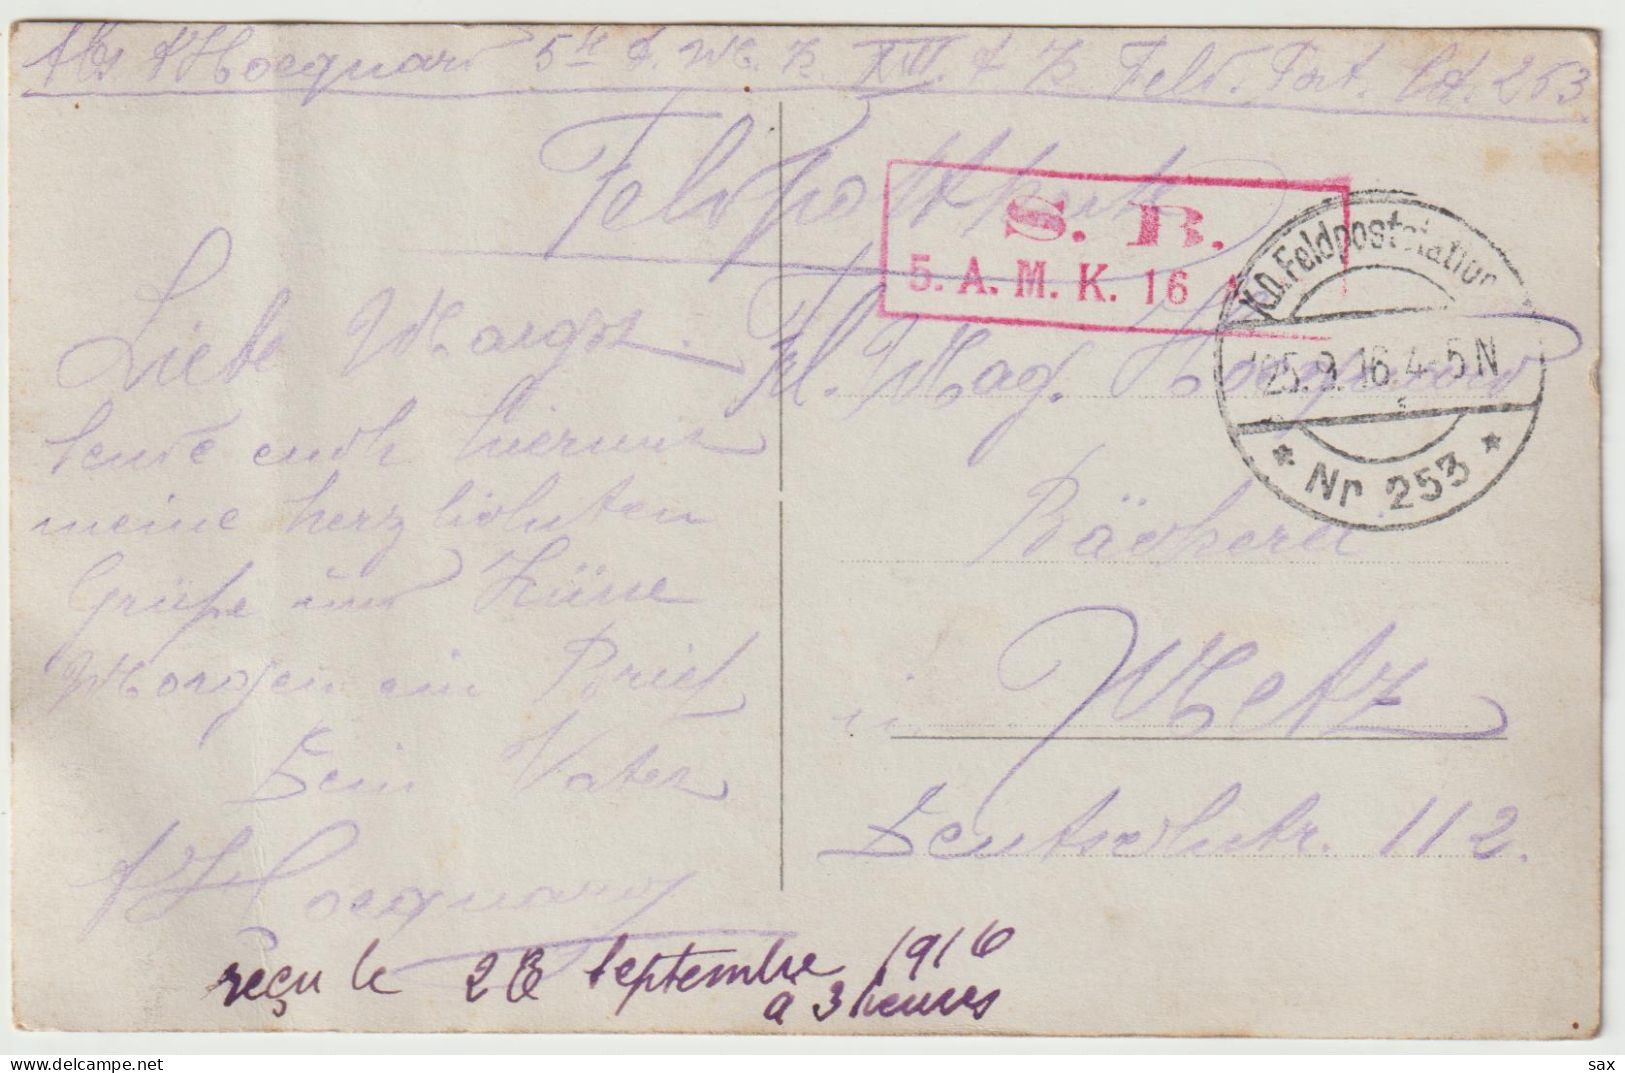 Abs. Hocquard 5te A. M. K. XIII. A K Feld. Post. St. 253
Feldpostkarte
S. B.
5. A. M. K. 16 A
K.D. Feldpoststation
25.9.16. 4-5 N
* Nr 253 *
Liebe Margot.
sende euch hiermit
meine herzlichsten
Grüße und Küsse
Morgen ein Brief
Dein Vater
Hocquard
Frl. Mag. Hocquard
Bäckerei
in Metz
Deutschstr. 112.
reçu le 28 septembre 1916
a 3 heures
sax